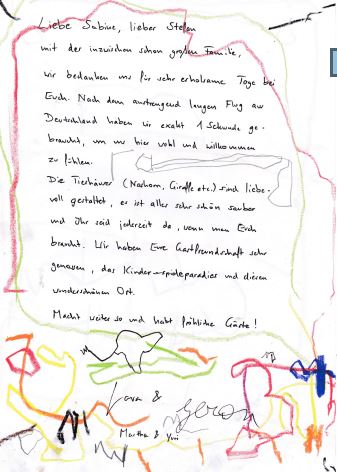 Liebe Sabine, lieber Stefan
mit der inzwischen schon großen Familie,
wir bedanken uns für sehr erholsame Tage bei
Euch. Nach dem anstrengend langen Flug aus
Deutschland haben wir exakt 1 Sekunde ge-
braucht, um uns hier wohl und willkommen
zu fühlen.
Die Tierhäuser (Nashorn, Giraffe etc.) sind liebe-
voll gestaltet, es ist alles sehr schön sauber
und Ihr seid jederzeit da, wenn man Euch
braucht. Wir haben Eure Gastfreundschaft sehr
genossen, das Kinderspieleparadies und diesen
wunderschönen Ort.
Macht weiter so und habt fröhliche Gäste!
&
Martha &